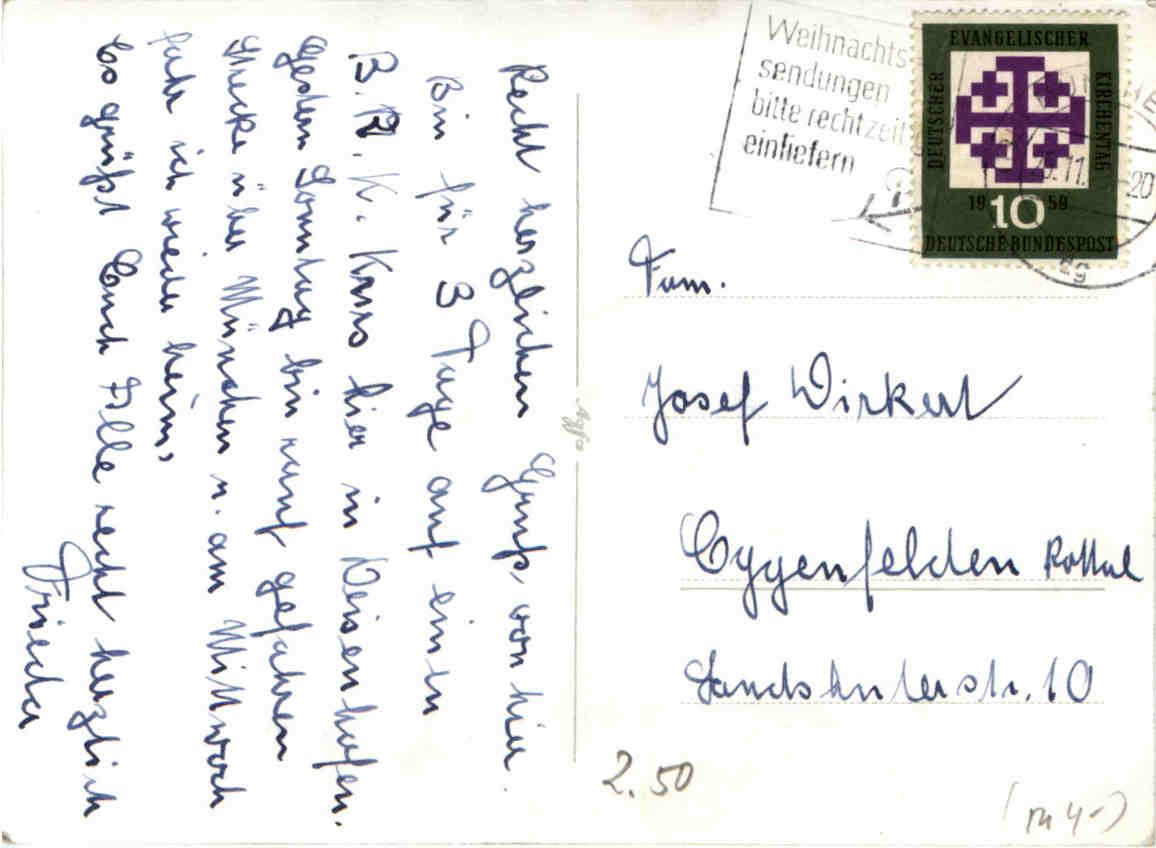 Recht herzlichen Gruß, von hier.
Bin für 3 Tage auf einen
B.K. Kurs hier in Deisenhofen.
Gestern Sonntag bin rauf gefahren
Strecke über München u. am Mittwoch
fahr ich wieder heim,
Es grüßt Euch Alle recht herzlich
Frieda
Agfa
Weihnachts-
sendungen
bitte rechtzeit
einliefern
EVANGELISCHER
DEUTSCHER
KIRCHENTAG
1959
10
DEUTSCHE BUNDESPOST
.11.
20
Fam.
Josef Wirkert
Eggenfelden Rottal
Landshuterstr. 10
2.50